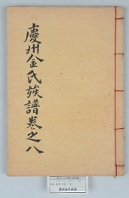 慶州金氏蔟譜卷之八